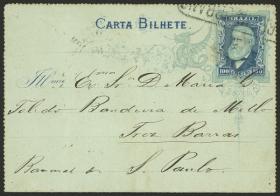 CARTA BILHETE.
BRAZIL
Illma Exma Sra D. Maria D.
Toledo Bandeira de Mello
Trez Barras
Ramal S. Paulo